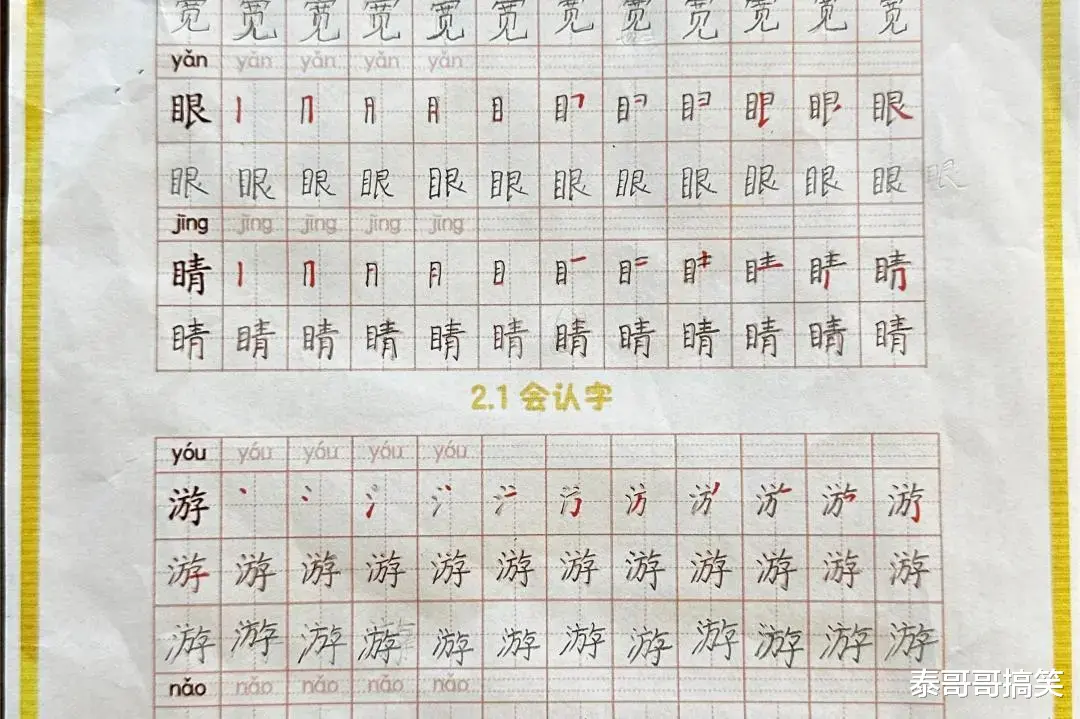 宽 宽 宽 宽 宽 宽 宽 宽 宽 宽 宽 宽
yǎn yǎn yǎn yǎn yǎn
眼 目 眼
眼 眼 眼 眼 眼 眼 眼 眼 眼 眼 眼 眼 眼
jīng jīng jīng jīng jīng
睛 目 睛
睛 睛 睛 睛 睛 睛 睛 睛 睛 睛 睛 睛
2.1 会认字
yóu yóu yóu yóu yóu
游 游
游 游 游 游 游 游 游 游 游 游 游 游
游 游 游 游 游 游 游 游 游 游 游 游
nǎo nǎo nǎo nǎo nǎo
泰哥哥搞笑